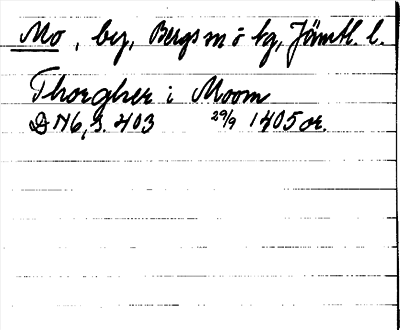 Mo, by, Bergs sn o hg, Jämtl. l.
Thorgher i Moom
DN 6, s. 403 29/9 1405 or.